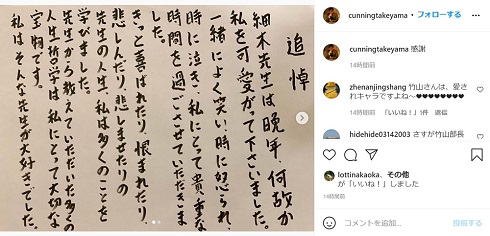 追悼
細木先生は晩年何故か
私を可愛がって下さいました。
一緒によく笑い時に怒られ、
時に泣き、私にとって貴重な
時間を過ごさせていただきま
した。
きっと喜ばれたり、恨まれたり、
悲しんだり、悲しませたりの
先生の人生、私は多くのことを
学びました。
先生から教えていただいた多くの
人生哲学は私にとって大切な
宝物です。
私はそんな先生が大好きでした。
cunningtakeyama・フォローする
cunningtakeyama 感謝
14時間前
zhenanjingshang 竹山さんは、愛さ
れキャラですよね〜❤❤❤❤❤❤❤❤
14時間前 「いいね！」1件 返信
hidehide03142003 さすが竹山部長
lottinakaoka、その他
が「いいね！」しました
14時間前
コメントを追加...
投稿する